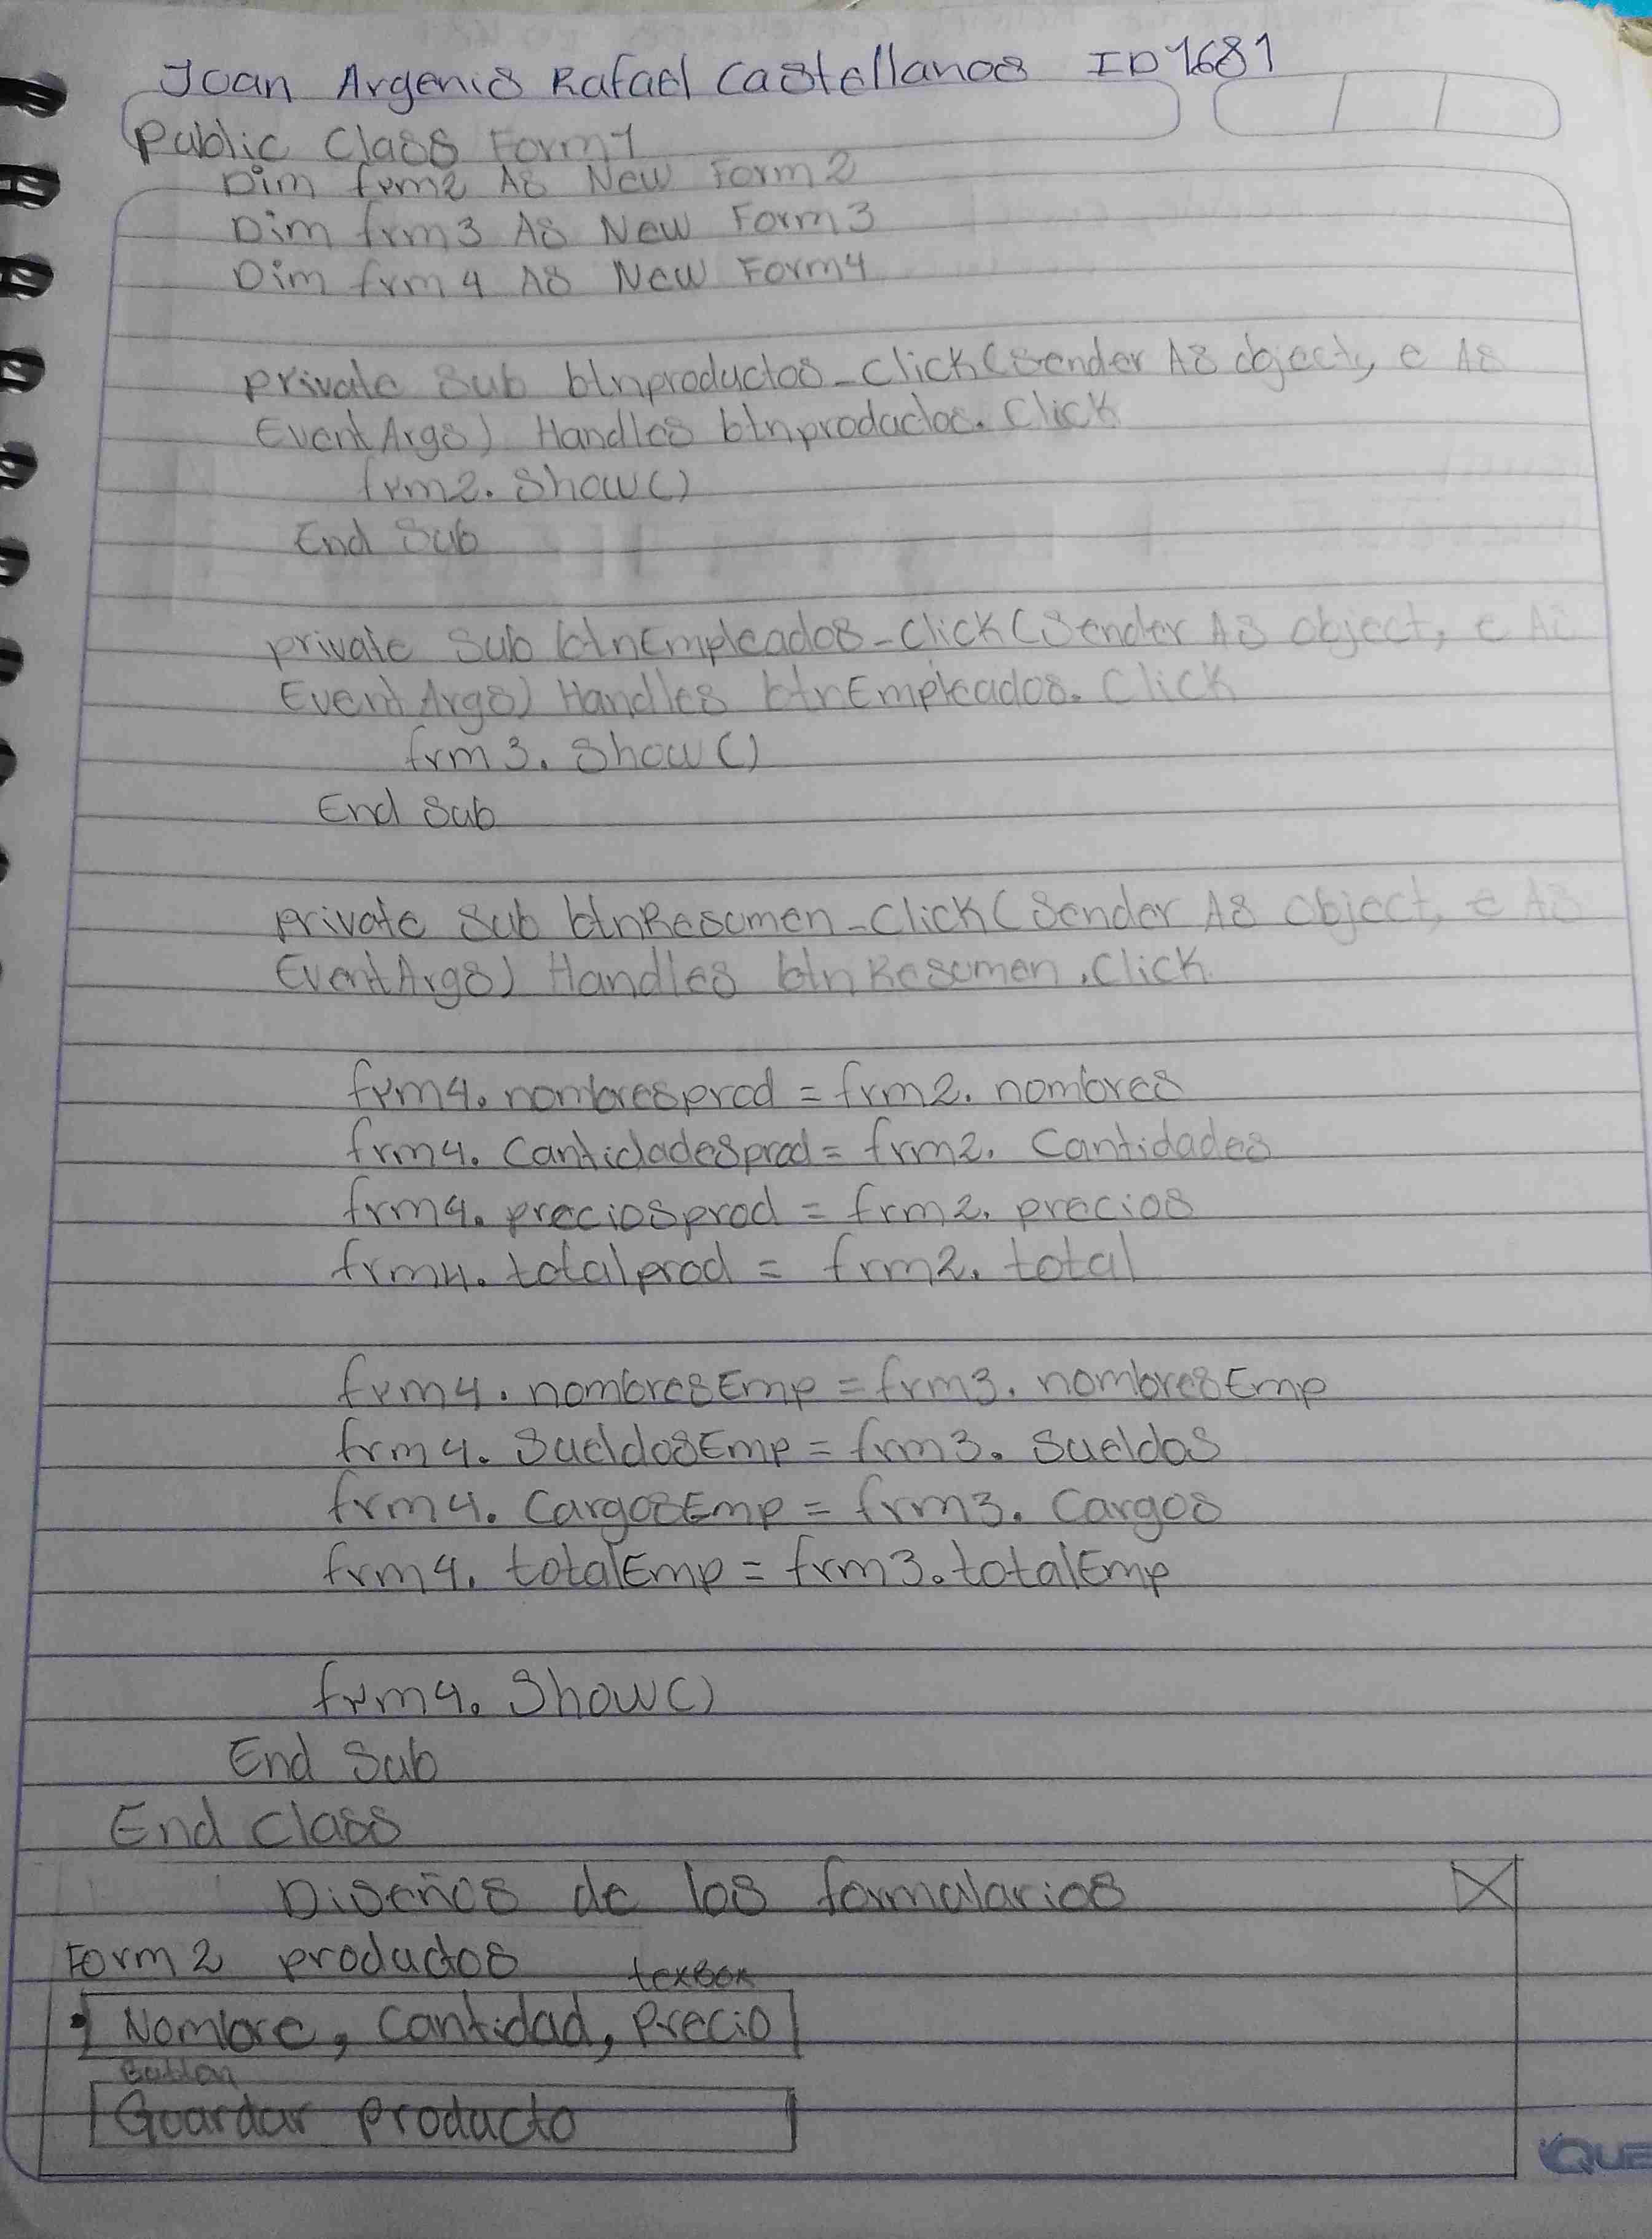 Joan Argenis Rafael Castellanos ID 1681
Public Class Form1
Dim frm2 As New Form2
Dim frm3 As New Form3
Dim frm4 As New Form4
private Sub btnproductos_Click(Sender As object, e As
EventArgs) Handles btnproductos.Click
frm2.Show()
End Sub
private Sub btnEmpleados_Click(Sender As object, e As
EventArgs) Handles btnEmpleados.Click
frm3.Show()
End Sub
private Sub btnResumen_Click(Sender As Object, e As
EventArgs) Handles btnResumen.Click
frm4.nombresprod = frm2.nombres
frm4.Cantidadesprod = frm2.Cantidades
frm4.preciosprod = frm2.precios
frm4.totalprod = frm2.total
frm4.nombresEmp = frm3.nombresEmp
frm4.SueldosEmp = frm3.Sueldos
frm4.CargosEmp = frm3.Cargos
frm4.totalEmp = frm3.totalEmp
frm4.Show()
End Sub
End Class
Diseños de los formularios
Form2 productos
texBox
Nombre, Cantidad, Precio
Button
Guardar Producto
QUE